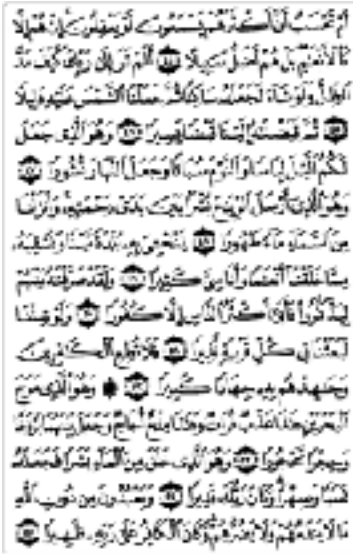 أَمْ تَحْسَبُ أَنَّ أَكْثَرَهُمْ يَسْمَعُونَ أَوْ يَعْقِلُونَ إِنْ هُمْ إِلَّا
كَالْأَنْعَامِ بَلْ هُمْ أَضَلُّ سَبِيلًا ﴿٤٤﴾ أَلَمْ تَرَ إِلَىٰ رَبِّكَ كَيْفَ مَدَّ
الظِّلَّ وَلَوْ شَاءَ لَجَعَلَهُ سَاكِنًا ثُمَّ جَعَلْنَا الشَّمْسَ عَلَيْهِ دَلِيلًا
﴿٤٥﴾ ثُمَّ قَبَضْنَاهُ إِلَيْنَا قَبْضًا يَسِيرًا ﴿٤٦﴾ وَهُوَ الَّذِي جَعَلَ
لَكُمُ اللَّيْلَ لِبَاسًا وَالنَّوْمَ سُبَاتًا وَجَعَلَ النَّهَارَ نُشُورًا ﴿٤٧﴾
وَهُوَ الَّذِي أَرْسَلَ الرِّيَاحَ بُشْرًا بَيْنَ يَدَيْ رَحْمَتِهِ وَأَنْزَلْنَا
مِنَ السَّمَاءِ مَاءً طَهُورًا ﴿٤٨﴾ لِنُحْيِيَ بِهِ بَلْدَةً مَيْتًا وَنُسْقِيَهُ
مِمَّا خَلَقْنَا أَنْعَامًا وَأَنَاسِيَّ كَثِيرًا ﴿٤٩﴾ وَلَقَدْ صَرَّفْنَاهُ بَيْنَهُمْ
لِيَذَّكَّرُوا فَأَبَىٰ أَكْثَرُ النَّاسِ إِلَّا كُفُورًا ﴿٥٠﴾ وَلَوْ شِئْنَا
لَبَعَثْنَا فِي كُلِّ قَرْيَةٍ نَذِيرًا ﴿٥١﴾ فَلَا تُطِعِ الْكَافِرِينَ
وَجَاهِدْهُمْ بِهِ جِهَادًا كَبِيرًا ﴿٥٢﴾ ۞ وَهُوَ الَّذِي مَرَجَ
الْبَحْرَيْنِ هَٰذَا عَذْبٌ فُرَاتٌ وَهَٰذَا مِلْحٌ أُجَاجٌ وَجَعَلَ بَيْنَهُمَا بَرْزَخًا
وَحِجْرًا مَحْجُورًا ﴿٥٣﴾ وَهُوَ الَّذِي خَلَقَ مِنَ الْمَاءِ بَشَرًا فَجَعَلَهُ
نَسَبًا وَصِهْرًا وَكَانَ رَبُّكَ قَدِيرًا ﴿٥٤﴾ وَيَعْبُدُونَ مِنْ دُونِ اللَّهِ
مَا لَا يَنْفَعُهُمْ وَلَا يَضُرُّهُمْ وَكَانَ الْكَافِرُ عَلَىٰ رَبِّهِ ظَهِيرًا ﴿٥٥﴾